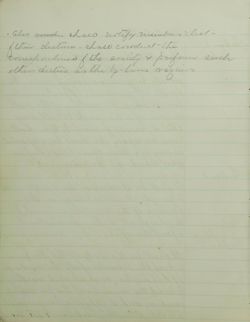 . Also [under] shall notify members elect
of their election - shall conduct the
correspondence of the society & perform such
other duties as the by-laws require